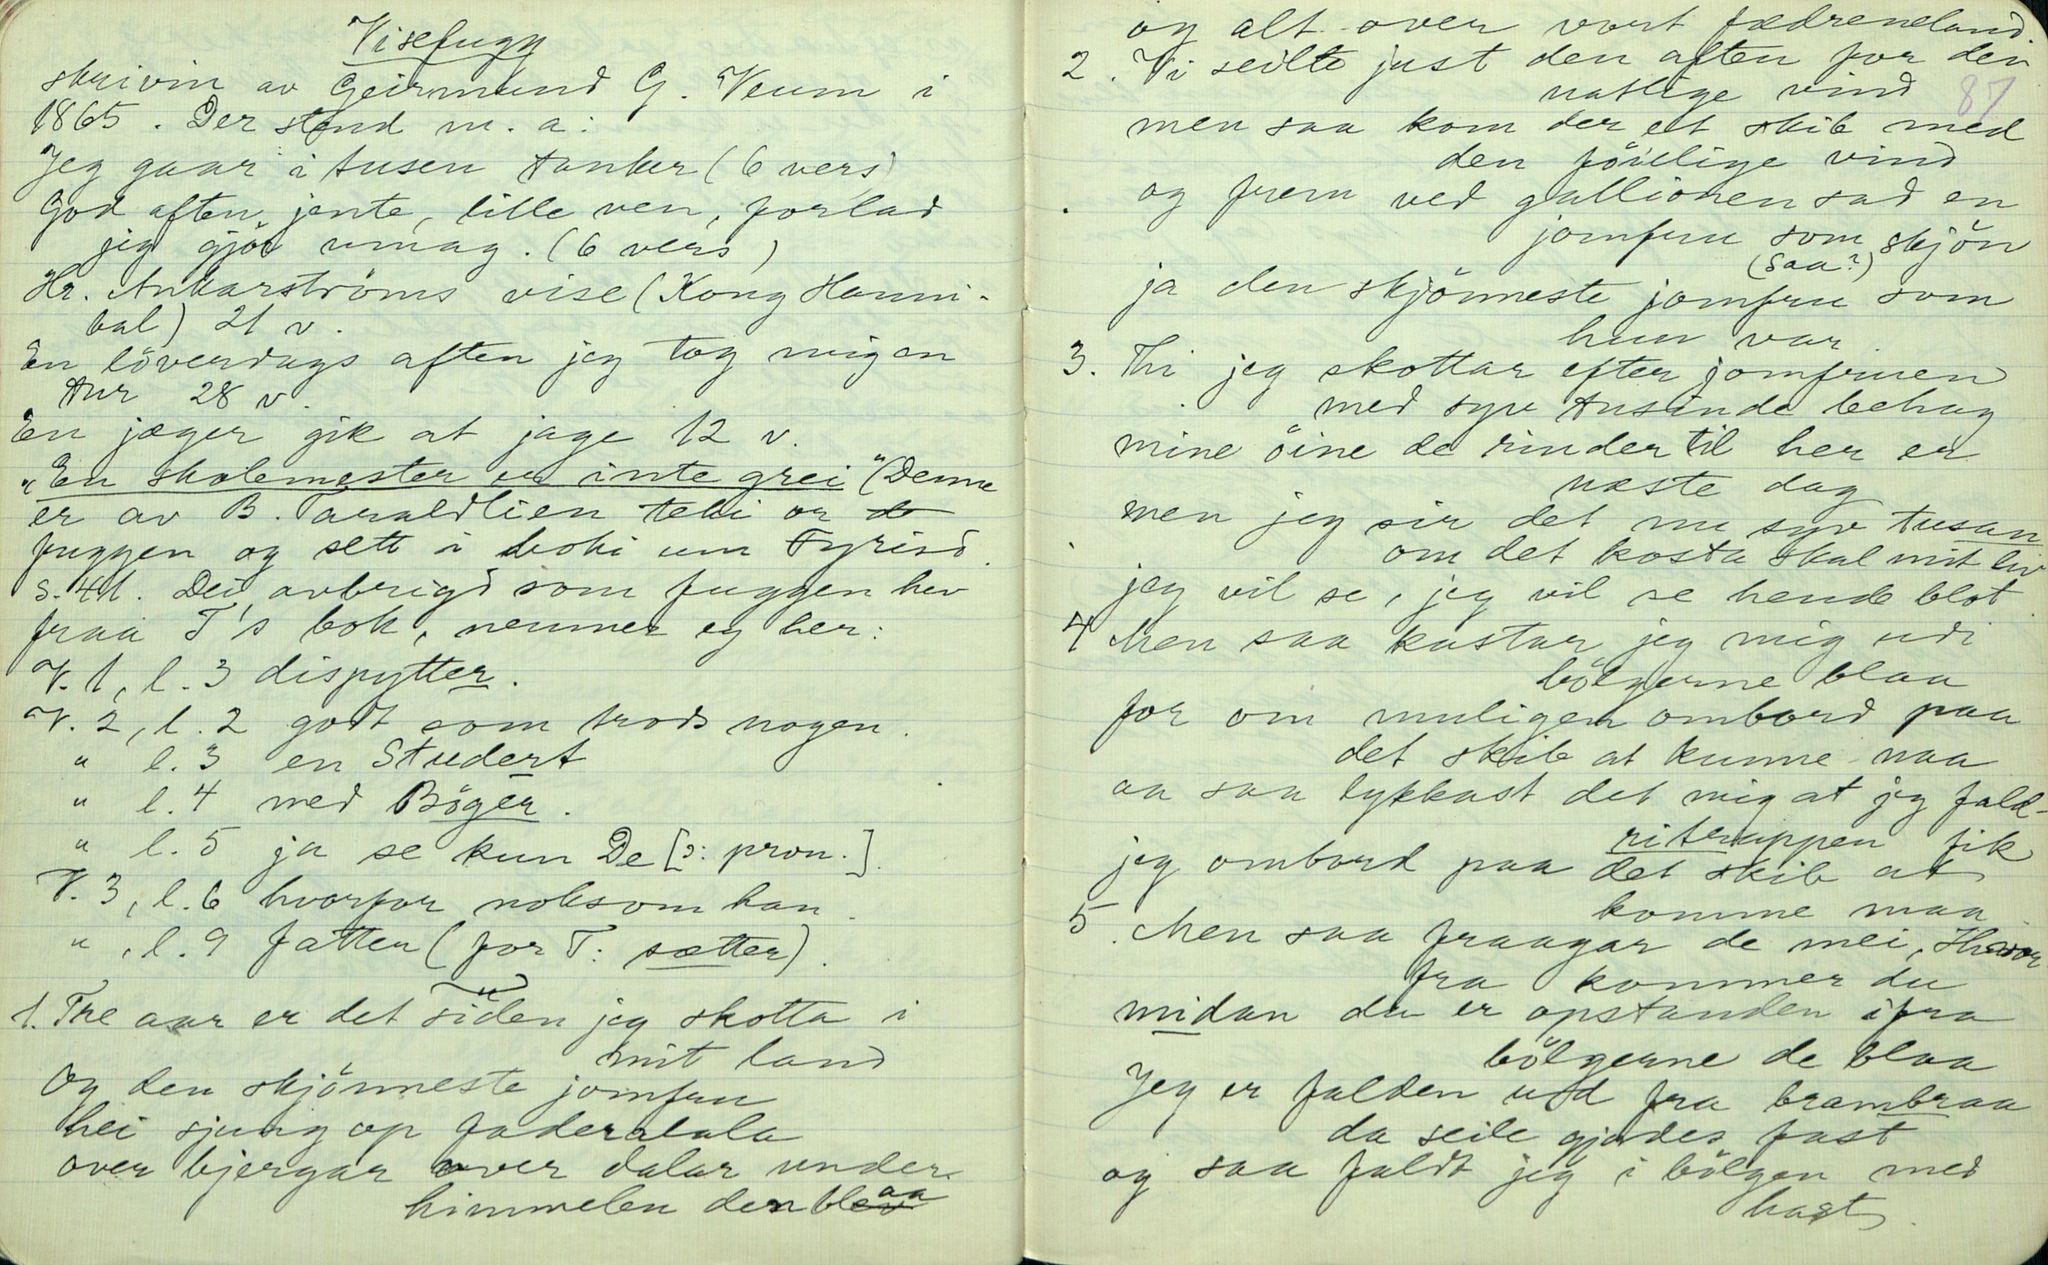 Visefugg
skrivin av Geirmund G. Veum i
1865. Der stend m. a:
Jeg gaar i tusen tanker (6 vers)
God aften, jente, lille ven, forlad
jeg gjör umag. (6 vers)
Hr. Ankarströms vise (Kong Hanni-
bal) 21 v.
En löverdags aften jeg tog mig en
tur 28 v.
En jæger gik at jage 12 v.
"En skolemester er inte grei" (Denne
er av B. Taraldlien teki or de
fuggen og sett i boki um Tyrid
s. 41. Dei avbrigd som fuggen hev
fraa T's bok, nemner eg her:
V. 1, l. 3 dispytter.
V. 2, l. 2 godt som trods nogen.
" l. 3 en Studert
" l. 4 med Böger.
" l. 5 ja se kun De [ɔ: pron.].
V. 3, l. 6 hvorfor noksom han.
" , l. 9 fatter (for T: sætter).
1. Tre aar er det siden jeg skotta i
mit land
Og den skjönneste jomfru
hei sjung op faderalala
over bjergar over dalar under
himmelen den blaa
87
og alt over vort fædreneland.
2. Vi seilte just den aften for den
natlige vind
men saa kom der et skib med
den föielige vind
og frem ved gallionen sad en
jomfru som skjön
(saa?)
ja den skjönneste jomfru som
hun var.
3. Thi jeg skottar efter jomfruen
med syv tusinde behag
mine öine de rinder til her er
næste dag
men jeg sir det nu syv tusan
om det kosta skal mit liv
jeg vil se, jeg vil se hende blot
4 Men saa kastar jeg mig udi
bölgerne blaa
for om muligen ombord paa
det skib at kunne naa
aa saa lykkast det mig at jeg fald-
ritrappen fik
jeg ombord paa det skib at
komme maa
5. Men saa fraagar de mei, Hvor
fra kommer du
midan du er opstanden ifra
bölgerne de blaa
Jeg er falden ud fra brambraa
da seile gjordes fast
og saa faldt jeg i bölgen med
hast.